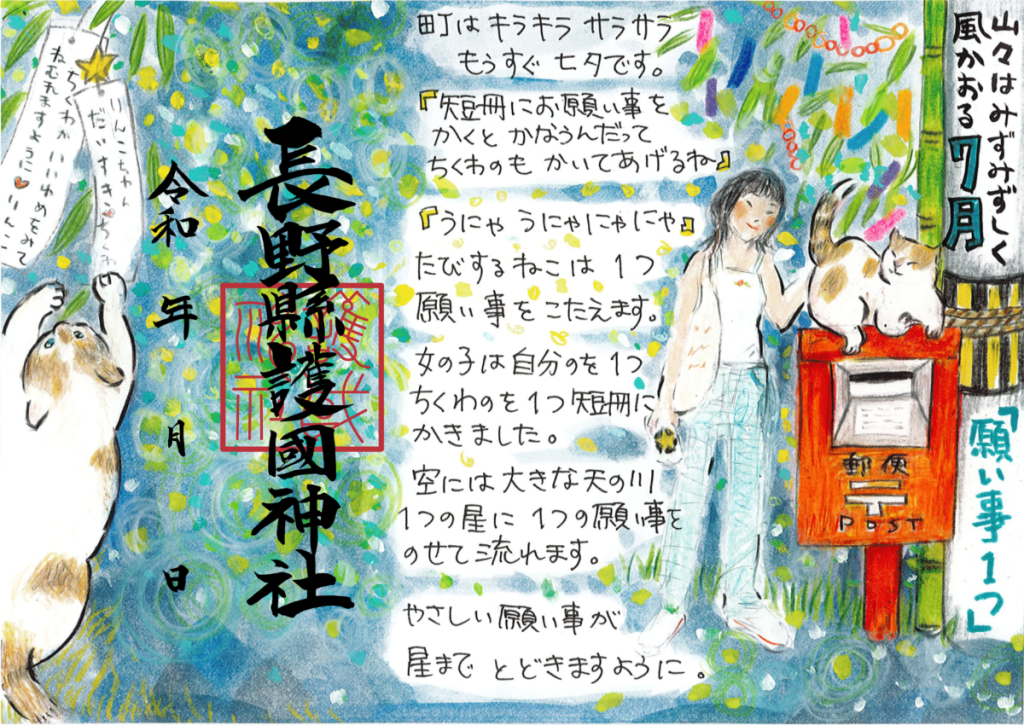 山々はみずみずしく
風かおる7月
「願い事1つ」
町はキラキラ サラサラ
もうすぐ 七夕です。
『短冊にお願い事を
かくと かなうんだって
ちくわのも かいてあげるね』
『うにゃ うにゃにゃにゃ』
たびするねこは 1つ
願い事をこたえます。
女の子は自分のを1つ
ちくわのを1つ短冊に
かきました。
空には大きな天の川
1つの星に 1つの願い事を
のせて流れます。
やさしい願い事が
星まで とどきますように。
郵便
〒
POST
長野縣護國神社
令和 年 月 日
りんこちゃん
だいすき♥ちくわ
ちくわが いいゆめをみて
ねむれますように♥りんこ